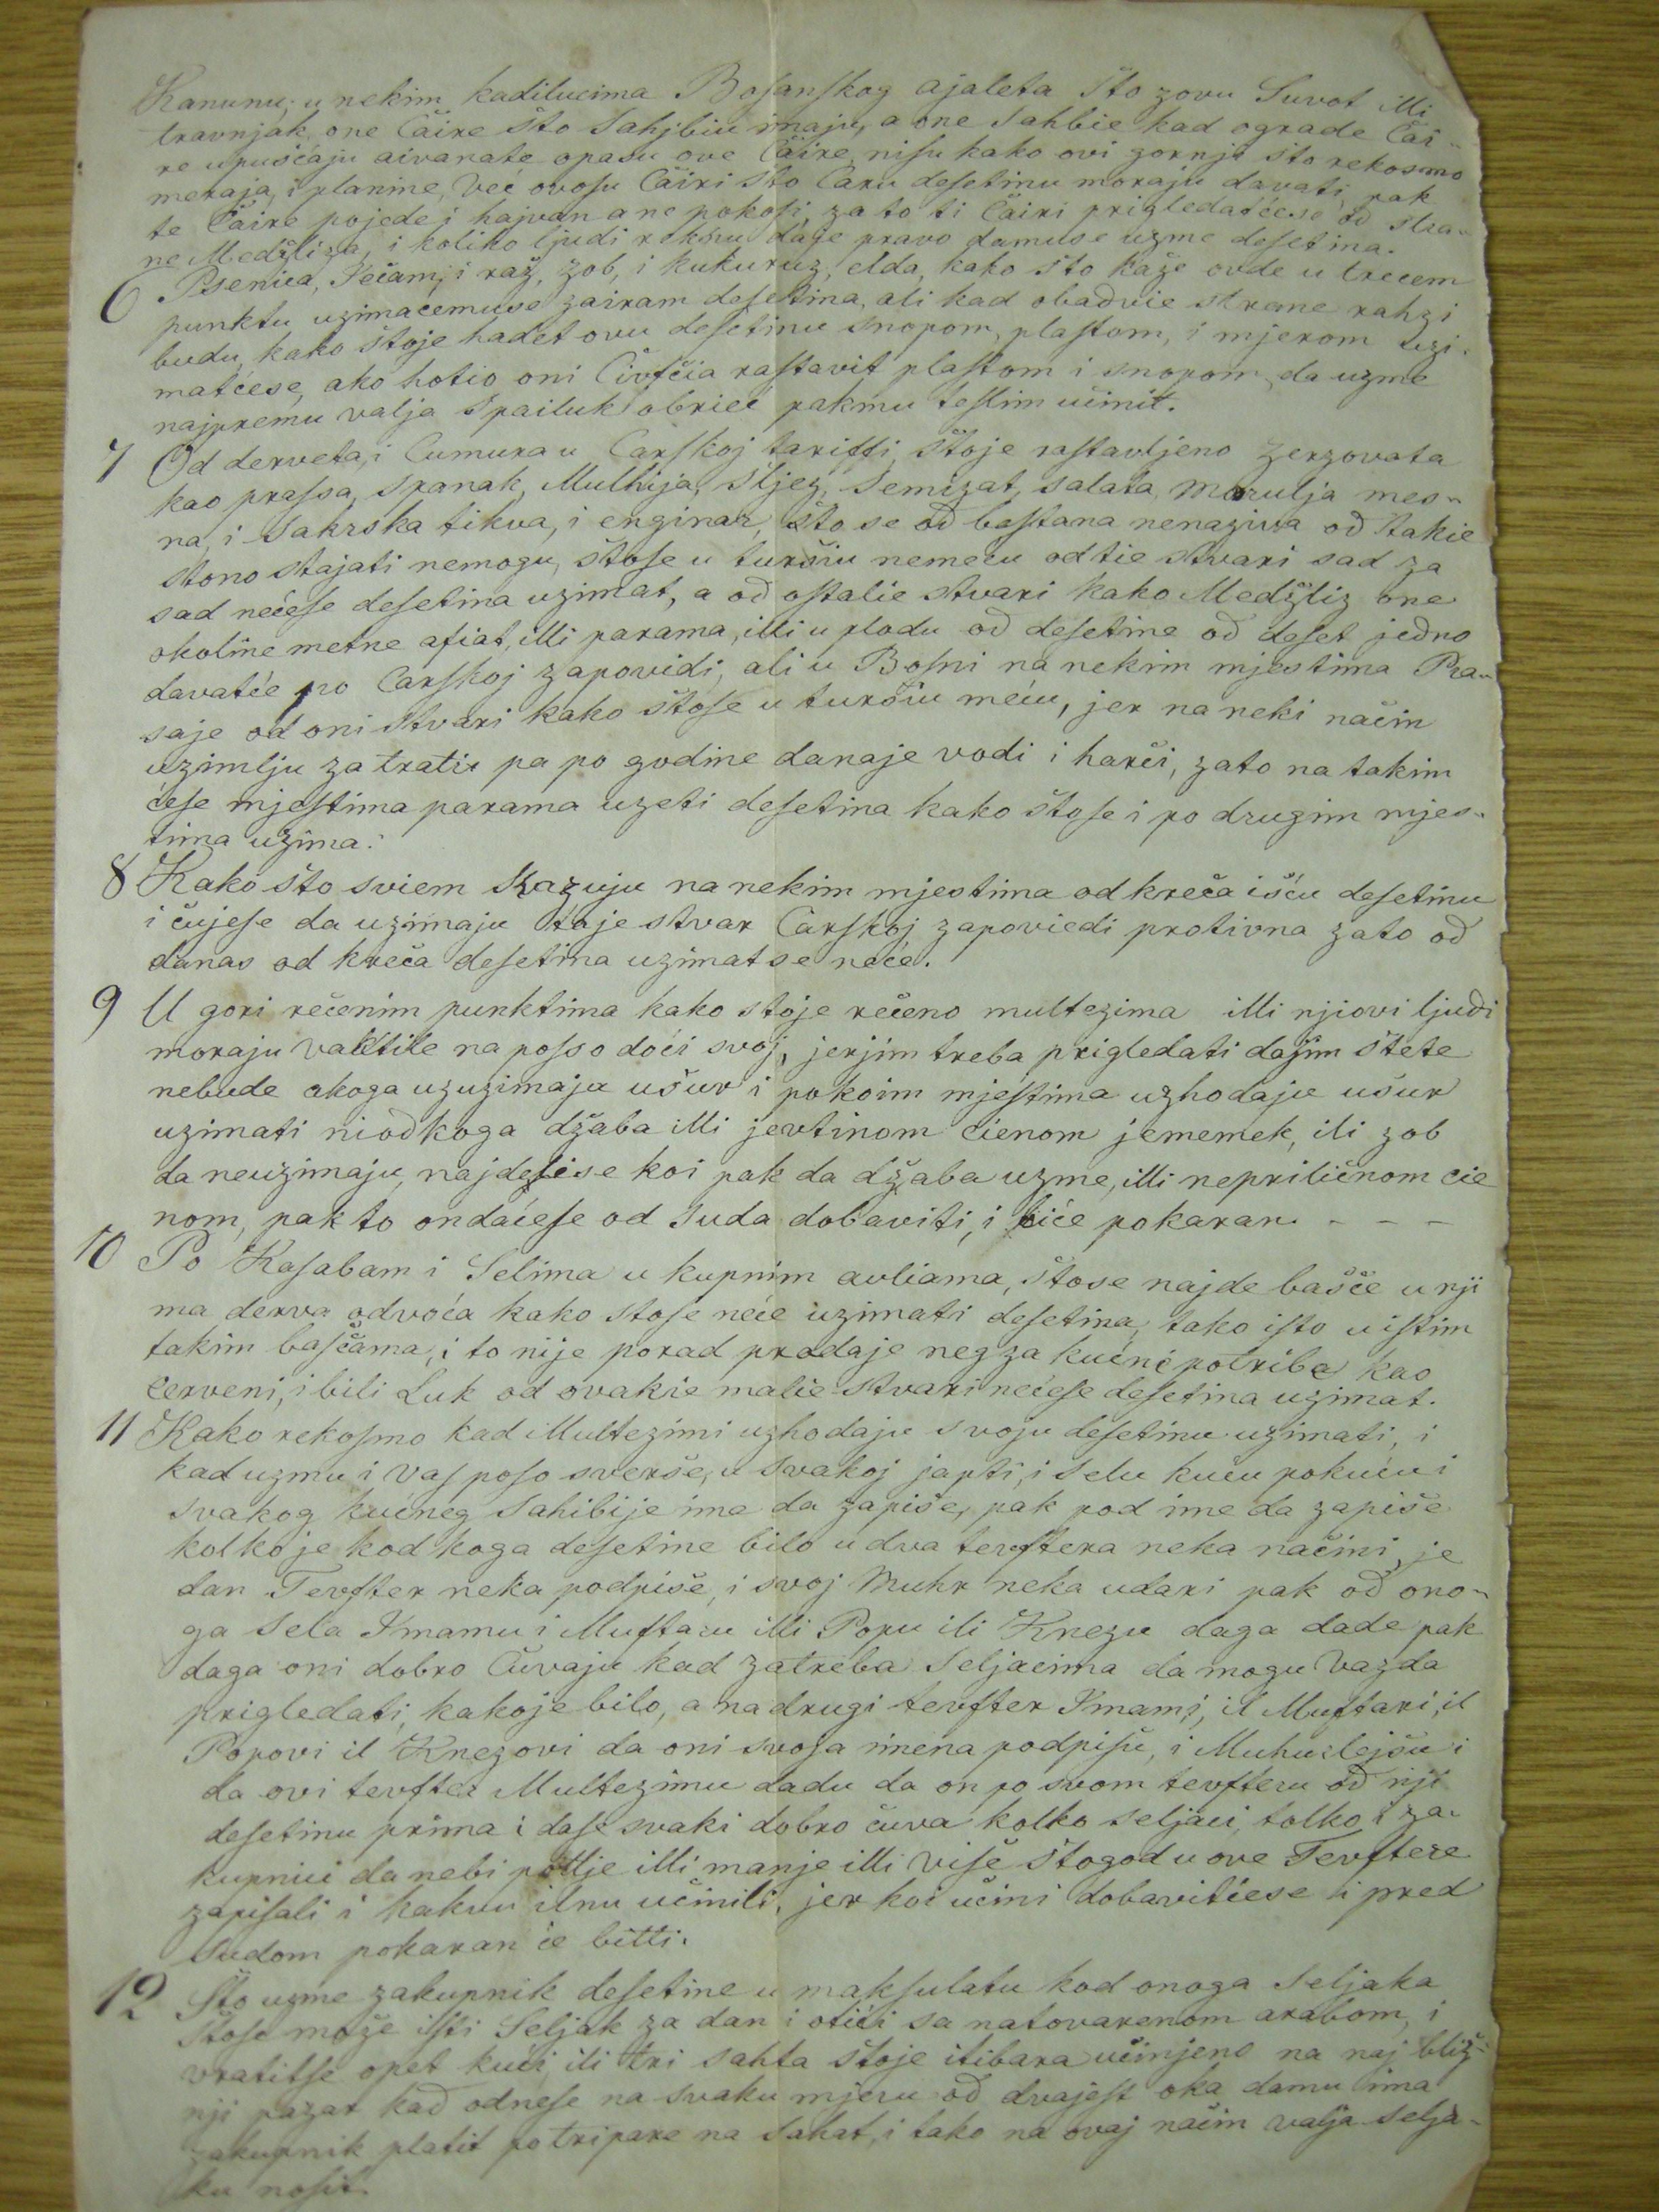 Kanunu; u nekim kadilucima Bosanskog ajaleta što zovu Suvot illi
travnjak, one Čaire što Sahjbiu imaju, a one Sahbie kad ograde Čai-
re upušćaju aivanate opasu ove Čaire, nisu kako ovi gornji što rekosmo
meraja, i planine, Već ovosu Čairi što Caru desetinu moraju davati, pak
te Čaire pojede i hajvan a ne pokosi, za to ti Čairi prigledatćese od stra-
ne Medžliza, i koliko ljudi reknu daje pravo damuse uzme desetina.
6 Psenica, Ječam, i raž, zob, i kukuruz, elda, kako što kaže ovde u trecem
punktu uzimaćemuse zairam desetina, ali kad obadvie strane rahzi
budu, kako štoje hadet ovu desetinu snopom, plastom, i mjerom uzi-
matćese, ako hotio oni Čivčia rastavit plastom i snopom, da uzme
najpremu valja Spailuk obrieć pakmu teslim učinit.
7 Od derveta, i Ćumura u Carskoj tariffi, štoje rastavljeno zerzovata
kao prassa, Spanak, Mulhija, Sljez, Semizat, salata, Marulja mes-
na, i Sakrska tikva, i enginar, što se od bastana nenaziva od takie
stono stajati nemogu, štose u turšiu nemeću odtie stvari sad za
sad nećese desetina uzimat, a od ostalie stvari kako Medžliz one
okoline metne afiat, illi parama, illi u plodu od desetine od deset jedno
davatće po Carskoj zapovidi, ali u Bosni na nekim mjestima Pra-
saje od oni stvari kako štose u turšiu meću, jer na neki način
uzimlju za tratiu pa po godine danaje vodi i harči, zato na takim
ćese mjestima parama uzeti desetina kako štose i po drugim mjes-
tima uzima.
8 Kako što sviem skazuju na nekim mjestima od kreča išću desetinu
i čujese da uzimaju taje stvar Carskoj zapoviedi protivna zato od
danas od kreča desetina uzimatse neće.
9 U gori rečenim punktima kako stoje rečeno multezima illi njiovi ljudi
moraju vaktile na posso doći svoj, jerjim treba prigledati dajim štete
nebude akoga uzuzimaju ušur i pokoim mjestima uzhodaju ušur
uzimati niodkoga džaba illi jevtinom cienom jememek, ili zob
da neuzimaju, najdelise koi pak da džaba uzme, illi nepriličnom cie
nom, pak to ondaćese od Suda dobaviti, i biće pokaran. - - -
10 Po Kasabam i Selima u kupnim avliama, štose najde bašče u nji
ma derva odvoća kako stose neće uzimati desetina, tako isto u istim
takim baščama, i to nije porad prodaje neg za kućne potribe kao
cerveni, i bili Luk od ovakie malie stvari nećese desetina uzimat.
11 Kako rekosmo kad Multezimi uzhodaju svoju desetinu uzimati, i
kad uzmu i vas poso sverše, u svakoj japti, i Selu kuću pokuću i
svakog kućneg Sahibije ime da zapiše, pak pod ime da zapiše
kolko je kod koga desetine bilo u dva tevftera neka načini, je
dan Tevfter neka podpiše, i svoj Muhr neka udari pak od ono-
ga Sela Imamu i Muftaru illi Popu ili Knezu daga dade pak
daga oni dobro Čuvaju kad zatreba Seljacima da mogu Vazda
prigledati, kakoje bilo, a na drugi tevfter Imami, il Muftari, il
Popovi il Knezovi da oni svoja imena podpišu, i Muhurlejšu i
da ovi tevfter Multezimu dadu da on po svom tevfteru od nji
desetinu prima i dase svaki dobro čuva kolko seljaci, tolko i za-
kupnici da nebi potlje illi manje illi više štogod u ove Tevftere
zapisali i kakvu ilnu učinili, jer koi učini dobavitćese i pred
Sudom pokaran će bitti.
12 Što uzme zakupnik desetine u maksulatu kod onoga Seljaka
štose može isti Seljak za dan i otići sa natovarenom arabom, i
vratitse opet kući, ili tri sahta štoje itibara učinjeno na naj bliž-
nji pazar kad odnese na svaku mjeru od dvajest oka damu ima
zakupnik platit potripare na Sahat, i tako na ovaj način valja Selja-
ku nosit.